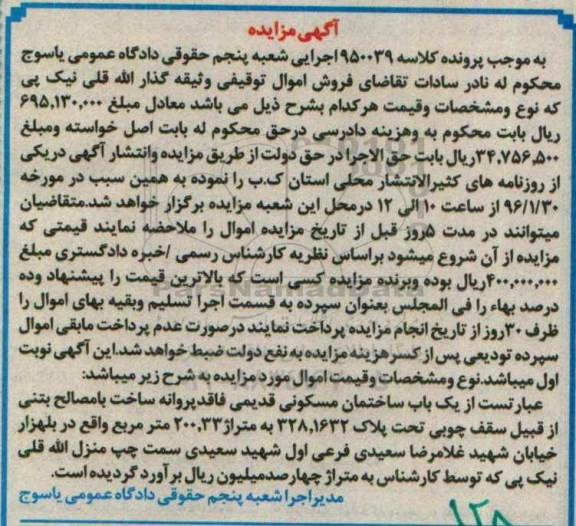 آگهی مزایده
به موجب پرونده کلاسه ۹۵۰۰۳۹ اجرایی شعبه پنجم حقوقی دادگاه عمومی یاسوج
محکوم له نادر سادات تقاضای فروش اموال توقیفی وثیقه گذار الله قلی نیک پی
که نوع ومشخصات وقیمت هرکدام بشرح ذیل می باشد معادل مبلغ ۶۹۵,۱۳۰,۰۰۰
ریال بابت محکوم به وهزینه دادرسی درحق محکوم له بابت اصل خواسته ومبلغ
۳۴,۷۵۶,۵۰۰ریال بابت حق الاجرا در حق دولت از طریق مزایده وانتشار آگهی دریکی
از روزنامه های کثیرالانتشار محلی استان ک.ب را نموده به همین سبب در مورخه
۹۶/۱/۳۰ از ساعت ۱۰ الی ۱۲ درمحل این شعبه مزایده برگزار خواهد شد.متقاضیان
میتوانند در مدت ۵روز قبل از تاریخ مزایده اموال را ملاحضه نمایند قیمتی که
مزایده از آن شروع میشود براساس نظریه کارشناس رسمی /خبره دادگستری مبلغ
۴۰۰,۰۰۰,۰۰۰ریال بوده وبرنده مزایده کسی است که بالاترین قیمت را پیشنهاد وده
درصد بهاء را فی المجلس بعنوان سپرده به قسمت اجرا تسلیم وبقیه بهای اموال را
ظرف ۳۰روز از تاریخ انجام مزایده پرداخت نمایند درصورت عدم پرداخت مابقی اموال
سپرده تودیعی پس از کسرهزینه مزایده به نفع دولت ضبط خواهد شد.این آگهی نوبت
اول میباشد.نوع ومشخصات وقیمت اموال مورد مزایده به شرح زیر میباشد:
عبارتست از یک باب ساختمان مسکونی قدیمی فاقدپروانه ساخت بامصالح بتنی
از قبیل سقف چوبی تحت پلاک ۳۲۸,۱۶۳۲ به متراژ۲۰۰,۳۳ متر مربع واقع در بلهزار
خیابان شهید غلامرضا سعیدی فرعی اول شهید سعیدی سمت چپ منزل الله قلی
نیک پی که توسط کارشناس به متراژ چهارصدمیلیون ریال برآورد گردیده است.
مدیر اجرا شعبه پنجم حقوقی دادگاه عمومی یاسوج
۱۲۸